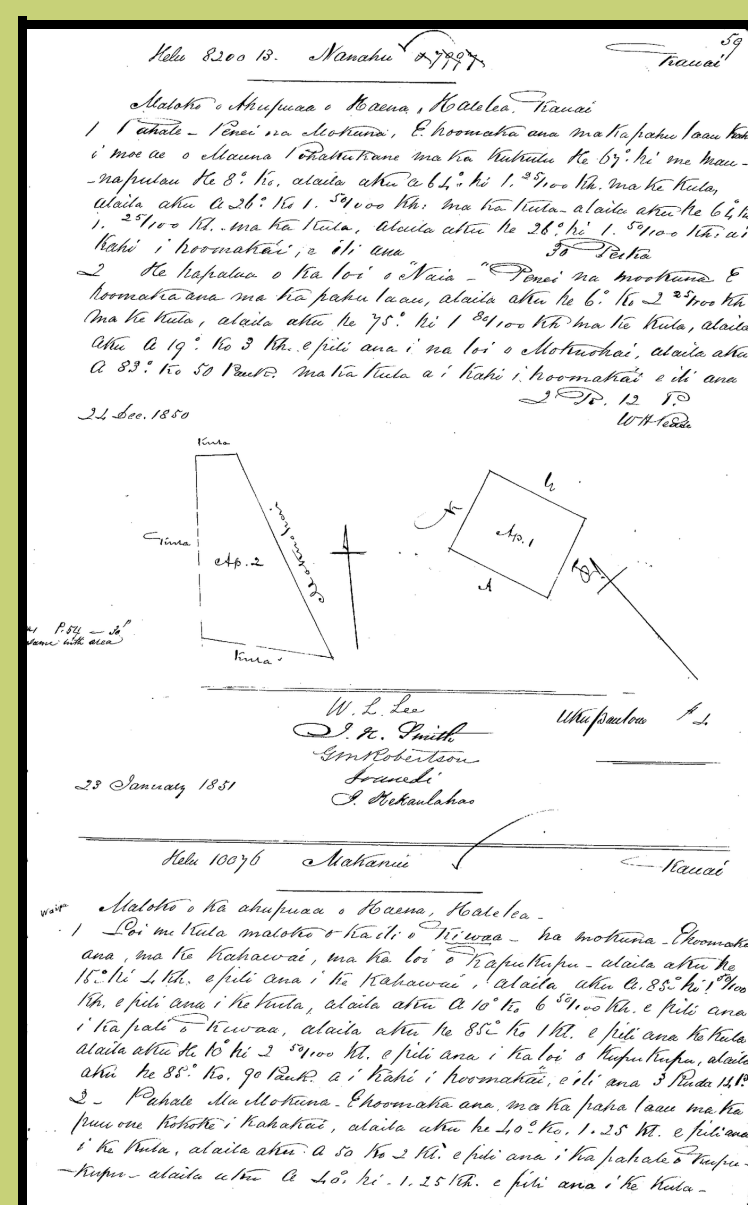 59
Helu 8200 B. Nanahu 7997 Kauai
Maloko o Ahupuaa o Haena, Halelea, Kauai
1 Pahale - Penei na Mokuna, E hoomaka ana ma ka pahu laau
i moe ae o Mauna Pohakukane ma ka kukulu He 67° hi me Mau-
-napulau He 8° Ko. alaila aku a 64° hi 1. 25/100 Kh. ma ke Kula,
alaila aku A 26° Ko 1. 50/100 Kh: ma ka Kula - alaila aku he 64
1. 25/100 Kl. ma ka Kula, alaila aku he 26° hi 1. 50/100 Kh: a i
Kahi i hoomakai, e ili ana 30 Peka
2 He hapalua o ka loi o "Naia" - Penei na mookuna E
hoomaka ana ma ka pahu laau, alaila aku he 6° Ko 2 25/100 Kh
ma ke Kula, alaila aku he 75° hi 1 80/100 Kh ma ke Kula, alaila
aku A 19° Ko 3 Kh. e pili ana i na loi o Mokuohai, alaila aku
A 83° Ko 50 Pauk. ma ka Kula a i kahi i hoomakai e ili ana
2 R. 12 P.
24 Dec. 1850 W H Pease
Kula
Kula
Ap. 2
Mokuohai
Kula
Ap. 1
A
P. 54 - 30
same with area
W. L. Lee
J. H. Smith
Uku paulou
G M Robertson
23 January 1851
J. Kekaulahao
Helu 10076 Makanui Kauai
Waipa
Maloko o Ka ahupuaa o Haena, Halelea -
1 Loi me Kula maloko o ka ili o Kiwaa - na mokuna - E hoomaka
ana, ma ke Kahawai, ma ka loi o Kapukupu - alaila aku he
15° hi 4 Kh. e pili ana i ke Kahawai, alaila aku A. 85° hi 1 50/100
Kh. e pili ana i ke Kula, alaila aku A 10° Ko 6 50/100 Kh. e pili ana
i ka pali o Kiwaa, alaila aku he 85° Ko 1 Kl. e pili ana Ke Kula
alaila aku He 10° hi 2 50/100 Kl. e pili ana i ka loi o Kupukupu, alaila
aku he 85° Ko. 90 Pauk. a i Kahi i hoomakai, e ili ana 3 Ruda 14 P.
2 - Pahale Na Mokuna - E hoomaka ana, ma ka paha laau ma ka
puu one Kokoke i Kahakai, alaila aku he 40° Ko, 1.25 Kl. e pili ana
i ke Kula, alaila aku A 50 Ko 2 Kl. e pili ana i ka pahale o Kupu-
-kupu - alaila aku A 40° hi - 1.25 Kh. e pili ana i ke Kula -